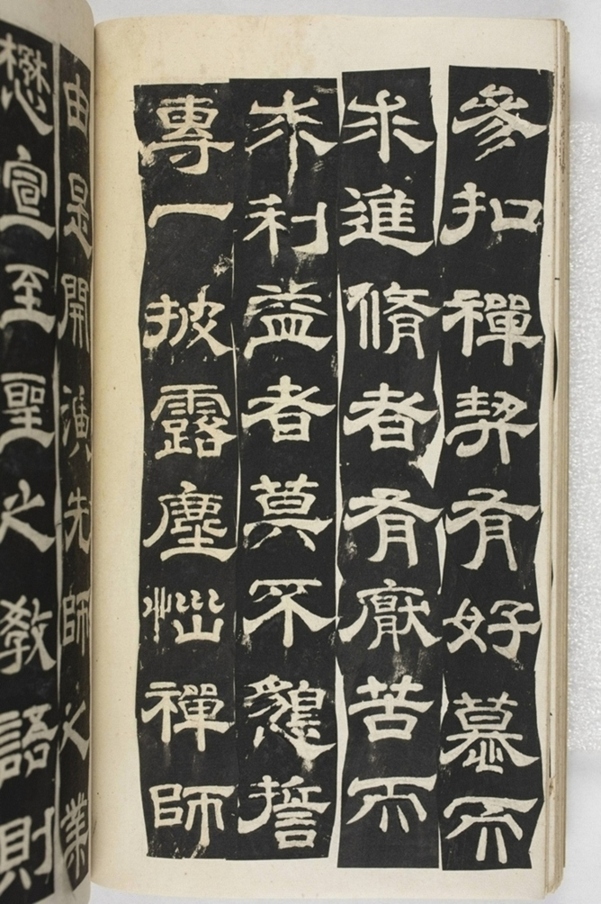 參扣禪契有好慕而
求進脩者有厭苦而
求利益者莫不懇誓
專一披露塵惱禪師
由是開演先師之業
懋宣至聖之教語則